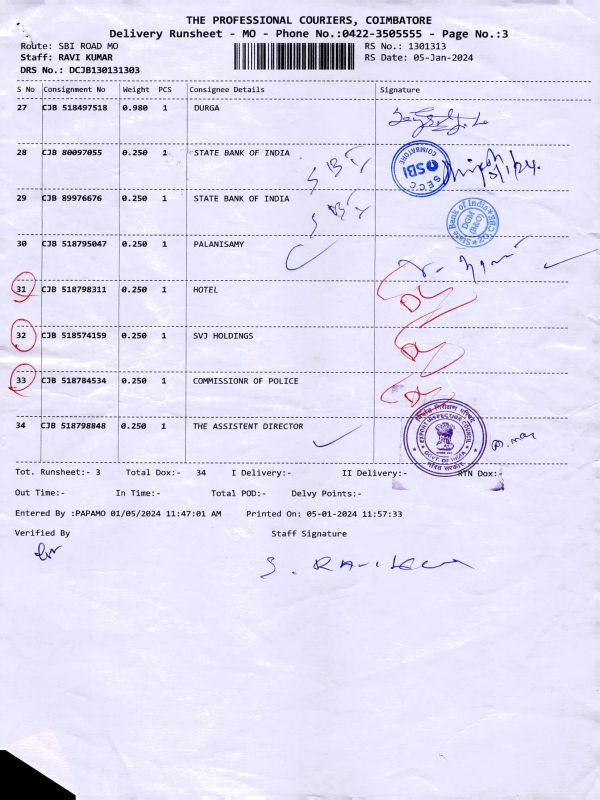 THE PROFESSIONAL COURIERS, COIMBATORE
Delivery Runsheet - MO - Phone No.:0422-3505555 - Page No.:3
Route: SBI ROAD MO RS No.: 1301313
Staff: RAVI KUMAR RS Date: 05-Jan-2024
DRS No.: DCJB130131303
S No Consignment No Weight PCS Consignee Details Signature
27 CJB 518497518 0.980 1 DURGA
28 CJB 80097055 0.250 1 STATE BANK OF INDIA
SBI
COIMBATORE
SBI
SECC
5/1/24.
29 CJB 89976676 0.250 1 STATE BANK OF INDIA
SBI
State Bank of India
DGM
(B&O)
30 CJB 518795047 0.250 1 PALANISAMY
31 CJB 518798311 0.250 1 HOTEL
DL
32 CJB 518574159 0.250 1 SVJ HOLDINGS
DL
33 CJB 518784534 0.250 1 COMMISSIONR OF POLICE
DL
34 CJB 518798848 0.250 1 THE ASSISTENT DIRECTOR
निर्यात निरीक्षण परिषद
EXPORT INSPECTION COUNCIL
GOVT. OF INDIA
भारत सरकार
Tot. Runsheet:- 3 Total Dox:- 34 I Delivery:- II Delivery:- RTN Dox:-
Out Time:- In Time:- Total POD:- Delvy Points:-
Entered By :PAPAMO 01/05/2024 11:47:01 AM Printed On: 05-01-2024 11:57:33
Verified By Staff Signature
S. Ravikumar